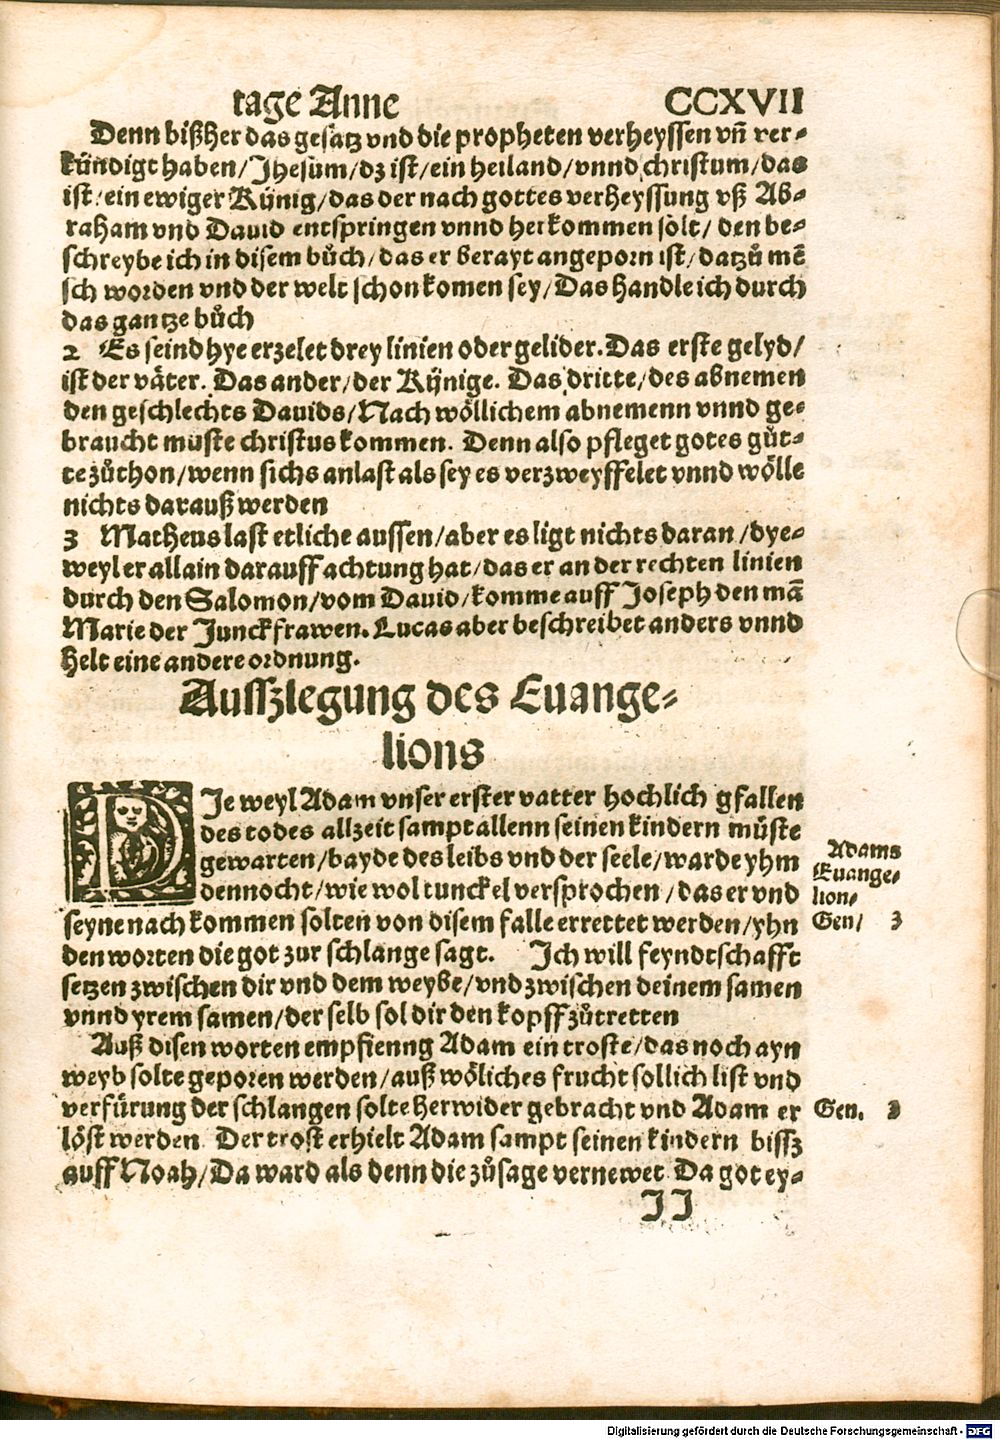 tage Anne CCXVII
Denn bißher das gesatz vnd die propheten verheyssen vñ ver⸗
kündigt haben/ Jhesum/ dz ist/ ein heiland/ vnnd christum/ das
ist/ ein ewiger Künig/ das der nach gottes verheyssung vß Ab⸗
raham vnd Dauid entspringen vnnd herkommen solt/ den be⸗
schreybe ich in disem bůch/ das er berayt angeporn ist/ datzů mẽ
sch worden vnd der welt schon komen sey/ Das handle ich durch
das gantze bůch
2 Es seind hye erzelet drey linien oder gelider. Das erste gelyd/
ist der väter. Das ander/ der Künige. Das dritte/ des abnemen
den geschlechts Dauids/ Nach wöllichem abnemenn vnnd ge⸗
braucht muste christus kommen. Denn also pfleget gotes gůt⸗
te zůthon/ wenn sichs anlast als sey es verzweyffelet vnnd wölle
nichts darauß werden
3 Matheus last etliche aussen/ aber es ligt nichts daran/ dye⸗
weyl er allain darauff achtung hat/ das er an der rechten linien
durch den Salomon/ vom Dauid/ komme auff Joseph den mã
Marie der Junckfrawen. Lucas aber beschreibet anders vnnd
helt eine andere ordnung.
Ausszlegung des Euange⸗
lions
DJe weyl Adam vnser erster vatter hochlich gfallen
des todes allzeit sampt allenn seinen kindern müste
gewarten/ bayde des leibs vnd der seele/ warde yhm
dennocht/ wie wol tunckel versprochen/ das er vnd
seyne nachkommen solten von disem falle errettet werden/ yhn
den worten die got zur schlange sagt. Ich will feyndtschafft
setzen zwischen dir vnd dem weybe/ vnd zwischen deinem samen
vnnd yrem samen/ der selb sol dir den kopff zůtretten
Adams
Euange⸗
lion/
Gen/ 3
Auß disen worten empfienng Adam ein troste/ das noch ayn
weyb solte geporen werden/ auß wöliches frucht sollich list vnd
verfürung der schlangen solte herwider gebracht vnd Adam er
löst werden. Der trost erhielt Adam sampt seinen kindern bissz
auff Noah/ Da ward als denn die zůsage vernewet Da got ey⸗
Gen. 3
JJ
Digitalisierung gefördert durch die Deutsche Forschungsgemeinschaft - DFG